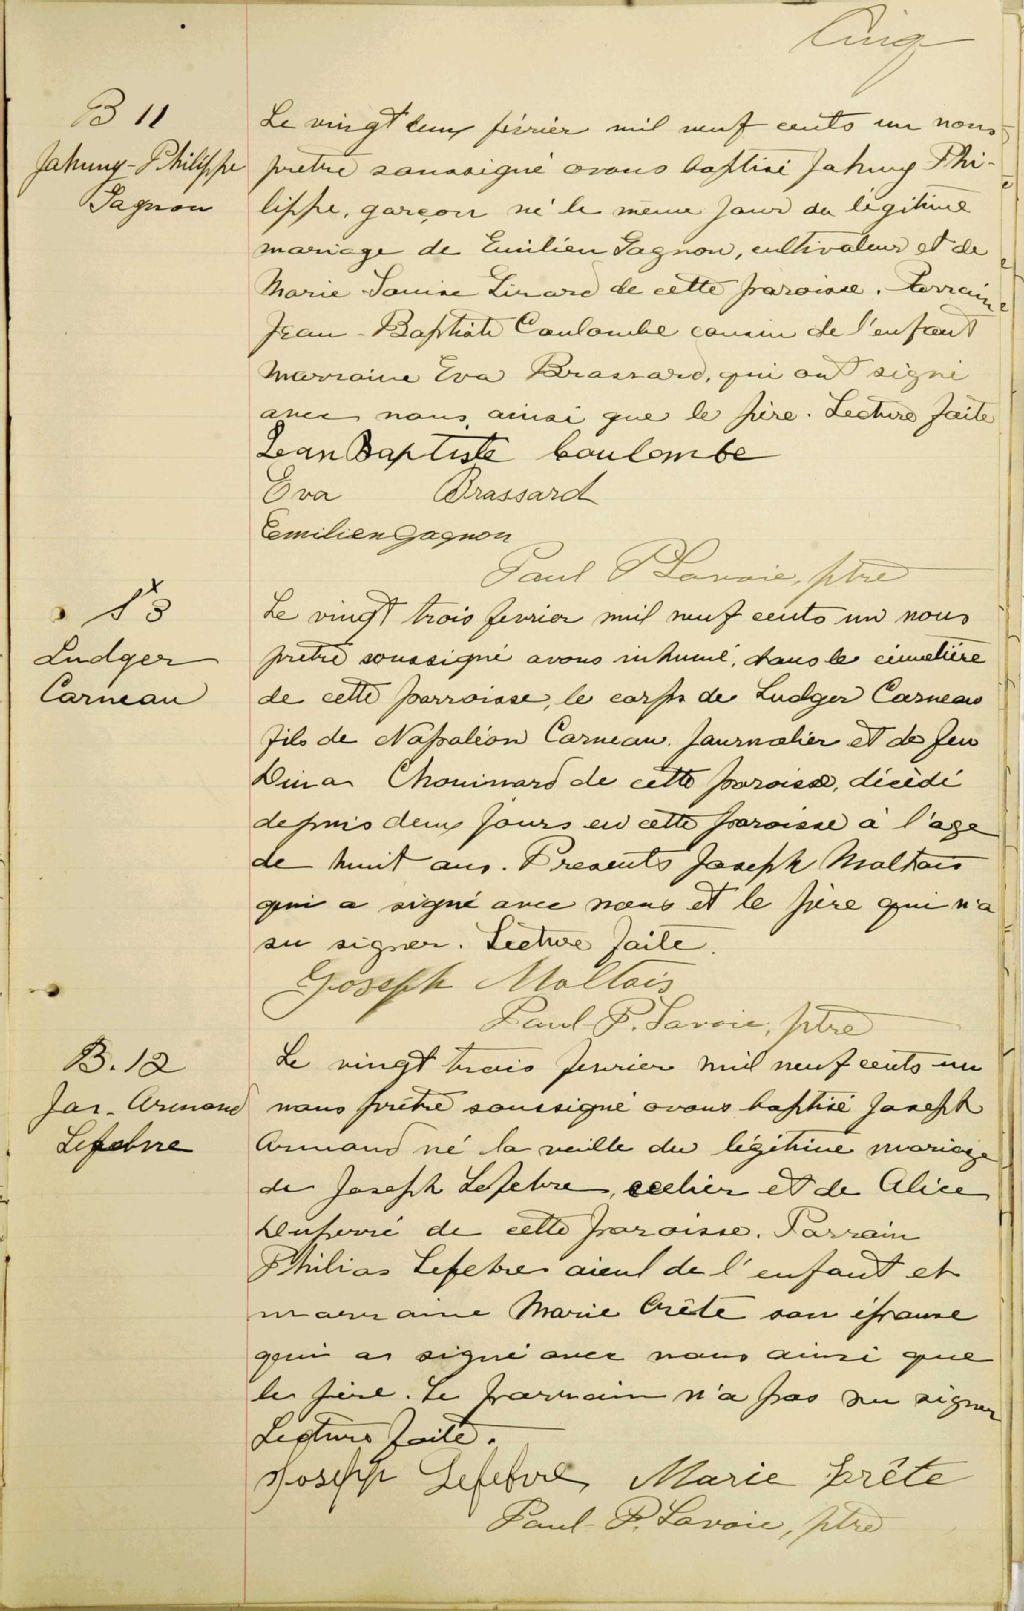 Cinq
B 11
Jahuny-Philippe
Gagnon
Le vingt deux février mil neuf cents un nous
prêtre soussigné avons baptisé Jahuny Phi-
lippe, garçon né le même jour du légitime
mariage de Emilien Gagnon, cultivateur et de
Marie Louise Girard de cette paroisse. Parrain
Jean-Baptiste Coulombe cousin de l'enfant
marraine Eva Brassard, qui ont signé
avec nous, ainsi que le père. Lecture faite
Jean Baptiste Coulombe
Eva Brassard
Emilien Gagnon
Paul P Lavoie, ptre
S 3
Ludger
Carneau
Le vingt trois fevrier mil neuf cents un nous
pretre soussigné avons inhumé, dans le cimetière
de cette parroisse, le corps de Ludger Carneau
fils de Napoléon Carneau journalier et de feu
Dina Chouinard de cette paroisse, décédé
depuis deux jours en cette paroisse à l'age
de huit ans. Presents Joseph Maltais
qui a signé avec nous et le père qui n'a
su signer. Lecture faite.
Joseph Maltais
Paul-P. Lavoie, ptre
B. 12
Jos. Armand
Lefebvre
Le vingt trois fevrier mil neuf cents un
nous prêtre soussigné avons baptisé Joseph
Armand né la veille du légitime mariage
de Joseph Lefebvre, sellier et de Alice
Duperré de cette paroisse. Parrain
Philias Lefebvre aieul de l'enfant et
marraine Marie Crête son épouse
qui a signé avec nous ainsi que
le père. Le parrain n'a pas su signer
Lecture faite.
Joseph Lefebvre Marie Crête
Paul-P. Lavoie, ptre